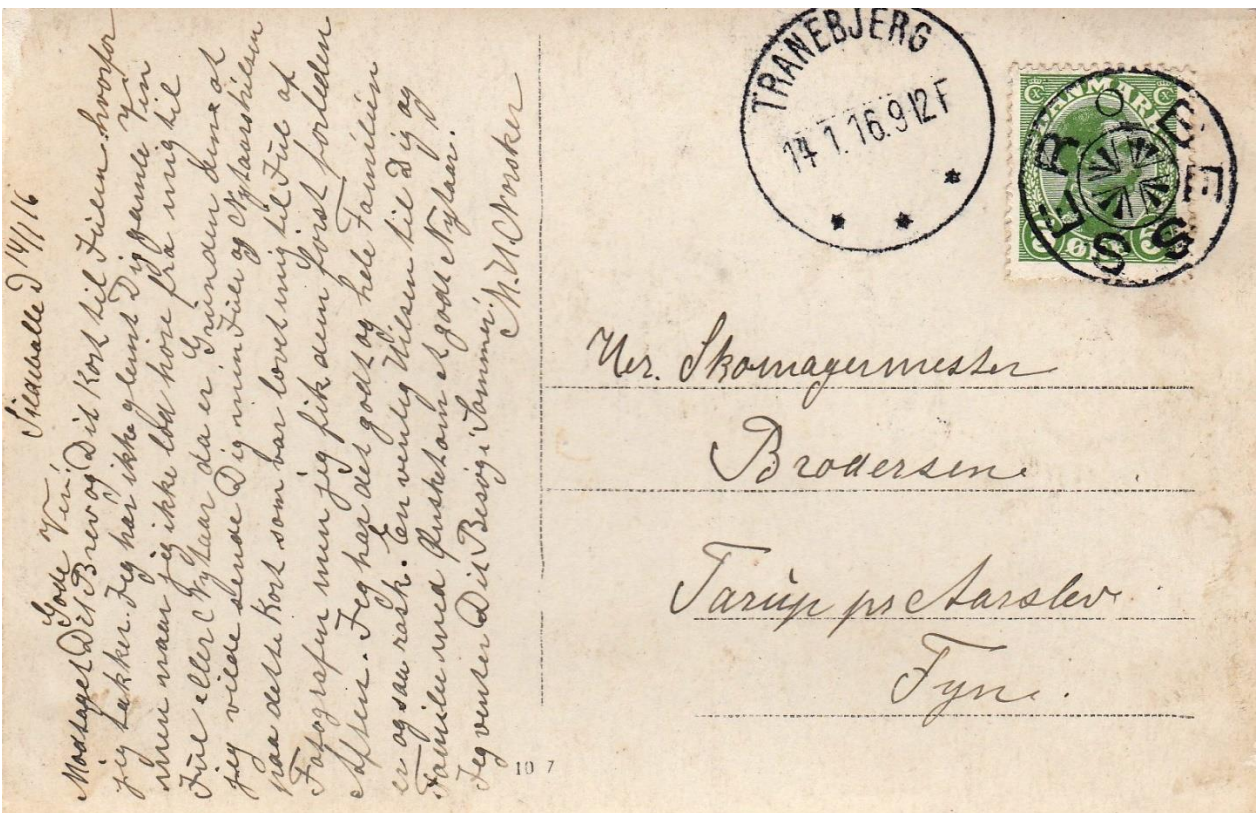 Sildeballe D 14/1 16
Gode Ven!
Modtaget Det Brev og Dit Kort til Julen hvorfor
jeg takker. Jeg har ikke glemt Dig gamle Ven
men naar jeg ikke lod høre fra mig til
Jul eller Nytaar da er Grunden denne at
jeg vilde sende Dig min Jule og Nytaarshilsen
paa dette Kort som var lovet mig til Jul af
Fotografen men jeg fik dem først forleden
Aften. Jeg har det godt og hele Familien
er ogsaa rask. En venlig Hilsen til Dig og
Familie med Ønsket om et godt Nytaar.
Jeg venter Dit Besøg i Sommer.
M. U. Norsker
TRANEBJERG
14.1.16.9-12 F
DANMARK
5 ØRE 5
BESSER
Hr. Skomagermester
Brodersen
Tarup pr Aarslev
Fyn.
10 7